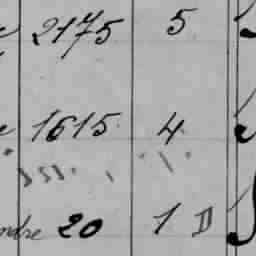 2175 5
1615 4
ndre 20 1 D